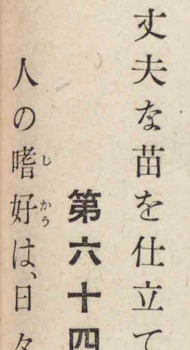 丈夫な苗を仕立て
第六十四
人の嗜好は、日々